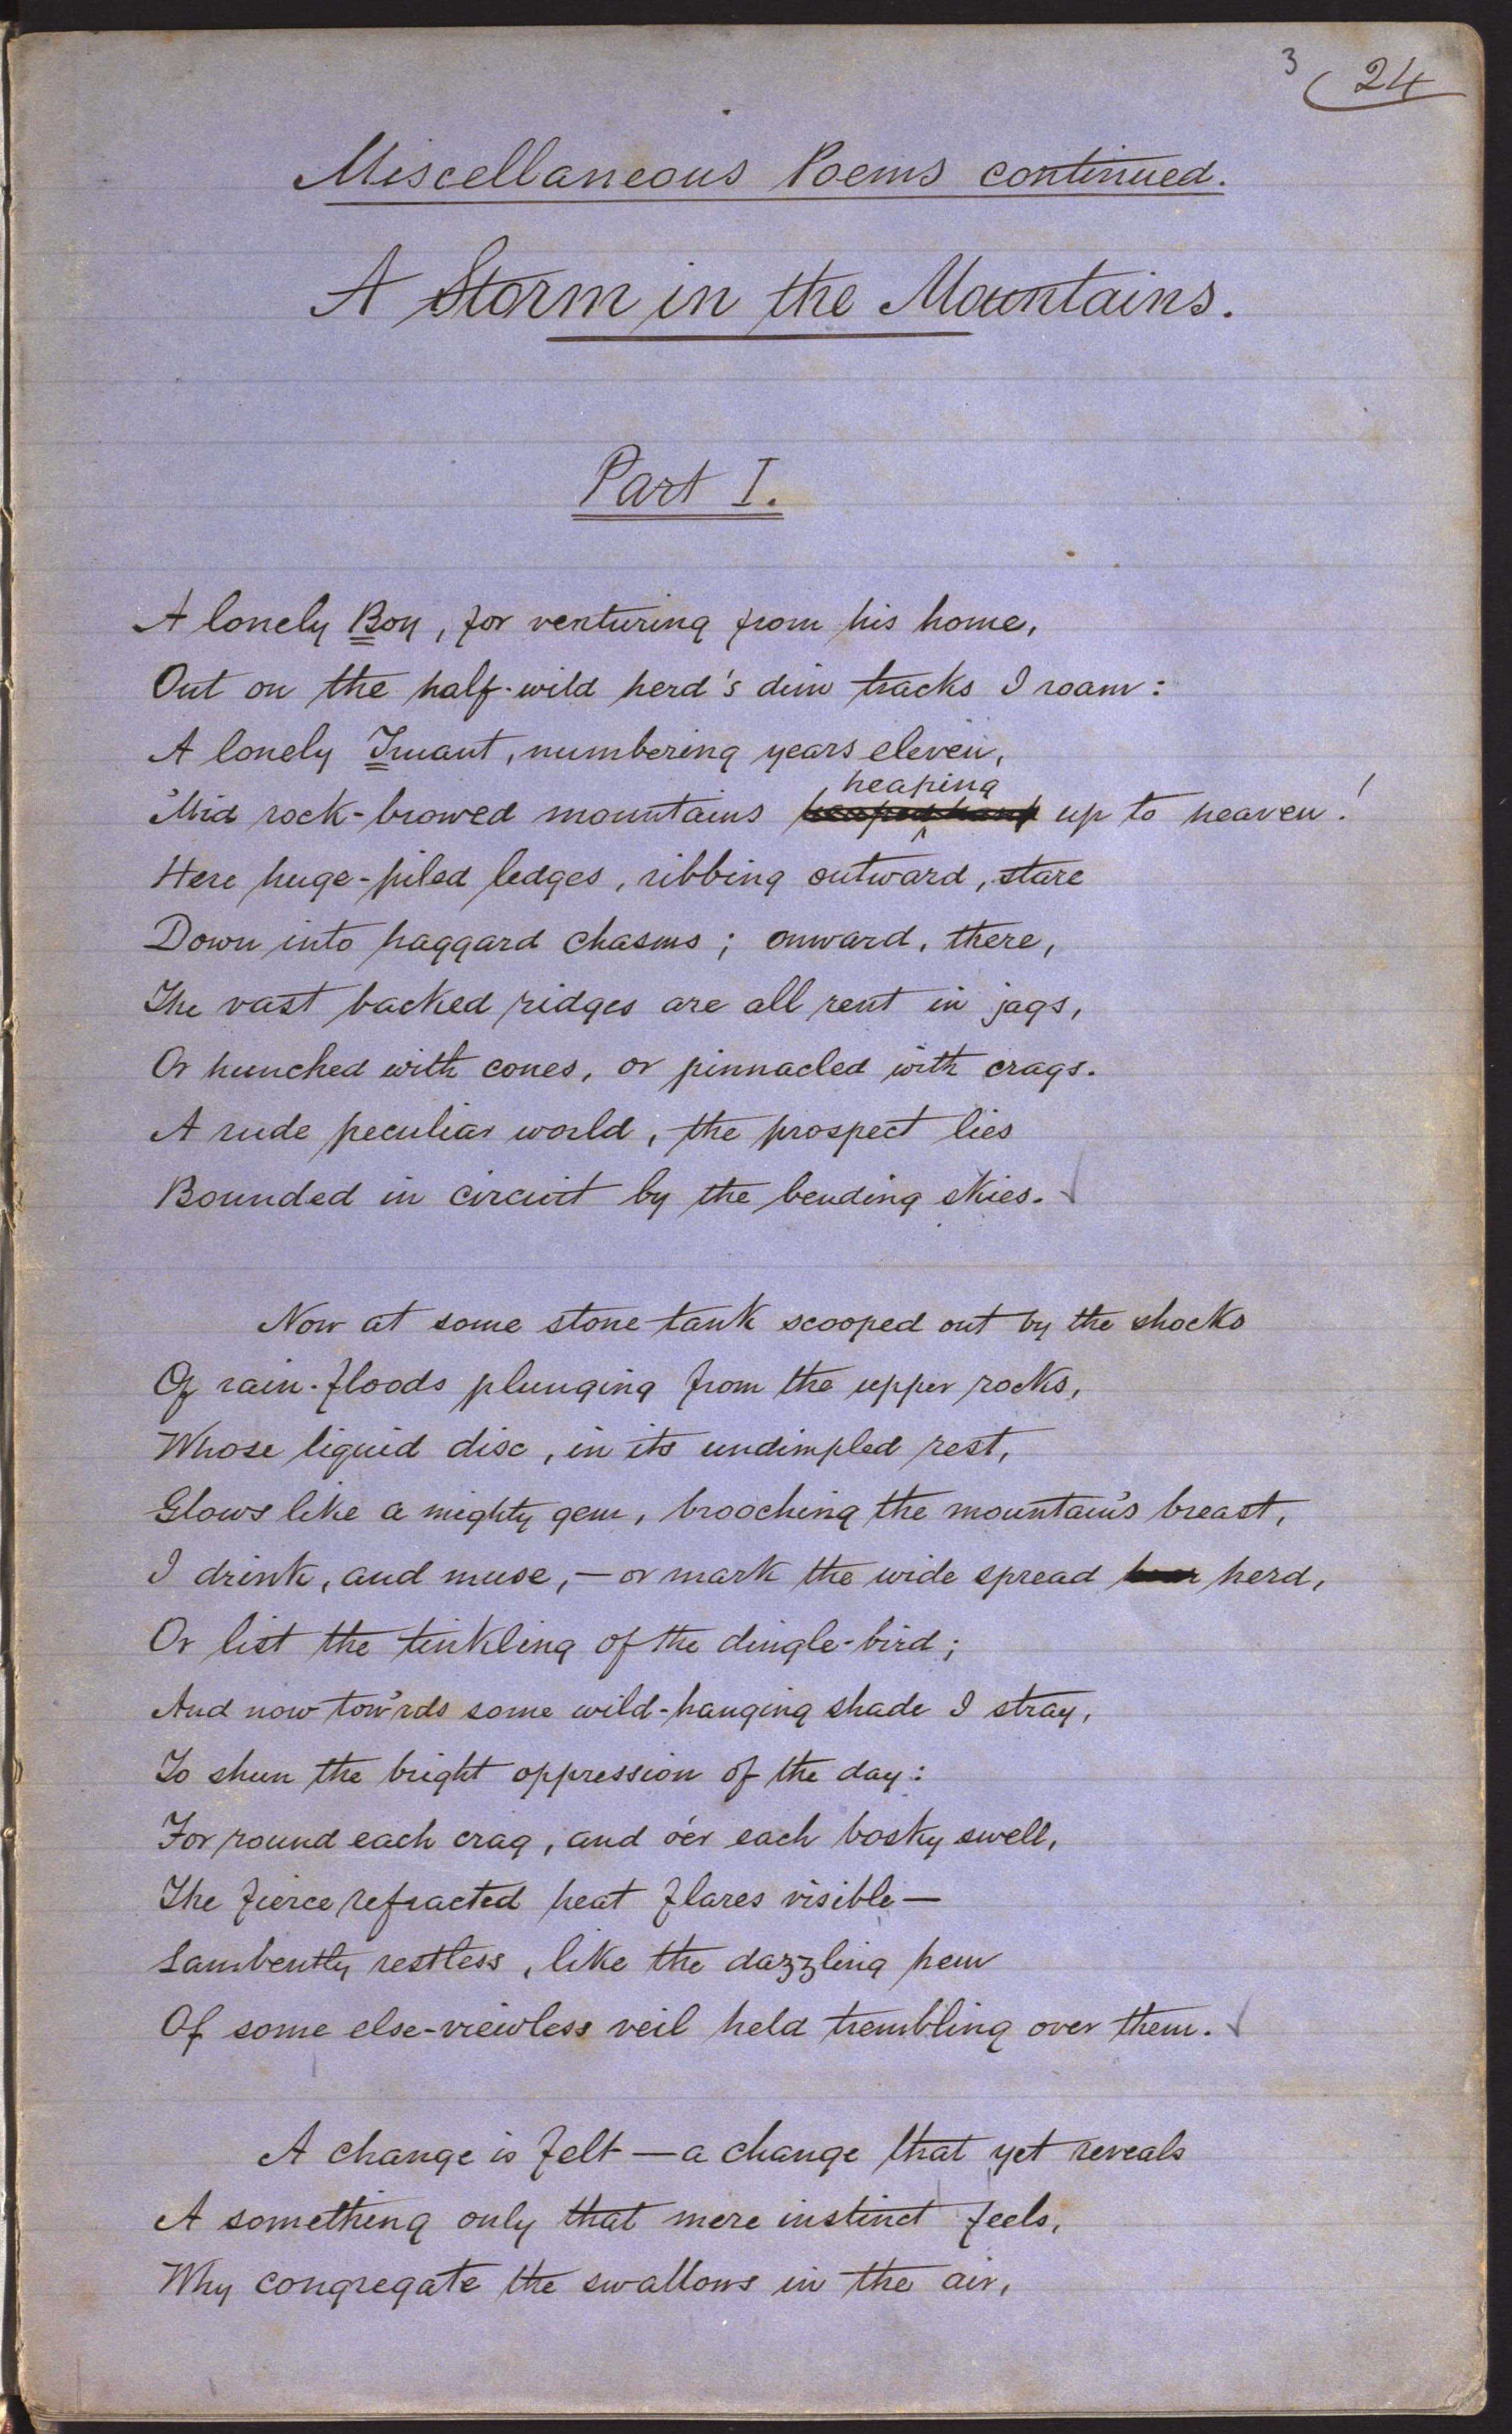 3 24
Miscellaneous Poems continued.
A Storm in the Mountains.
Part I.
A lonely Boy, far venturing from his home,
Out on the half-wild herd's dim tracks I roam:
A lonely Truant, numbering years eleven,
'Mid rock-browed mountains heaping up to heaven!
Here huge-piled ledges, ribbing outward, stare
Down into haggard chasms; onward, there,
The vast backed ridges are all rent in jags,
Or hunched with cones, or pinnacled with crags.
A rude peculiar world, the prospect lies
Bounded in circuit by the bending skies.
Now at some stone tank scooped out by the shocks
Of rain-floods plunging from the upper rocks,
Whose liquid disc, in its undimpled rest,
Glows like a mighty gem, brooching the mountain's breast,
I drink, and muse, — or mark the wide spread herd,
Or list the tinkling of the dingle-bird;
And now tow'rds some wild-hanging shade I stray,
To shun the bright oppression of the day:
For round each crag, and o'er each bosky swell,
The fierce refracted heat flares visible —
Lambently restless, like the dazzling hem
Of some else-viewless veil held trembling over them.
A change is felt — a change that yet reveals
A something only that mere instinct feels,
Why congregate the swallows in the air,